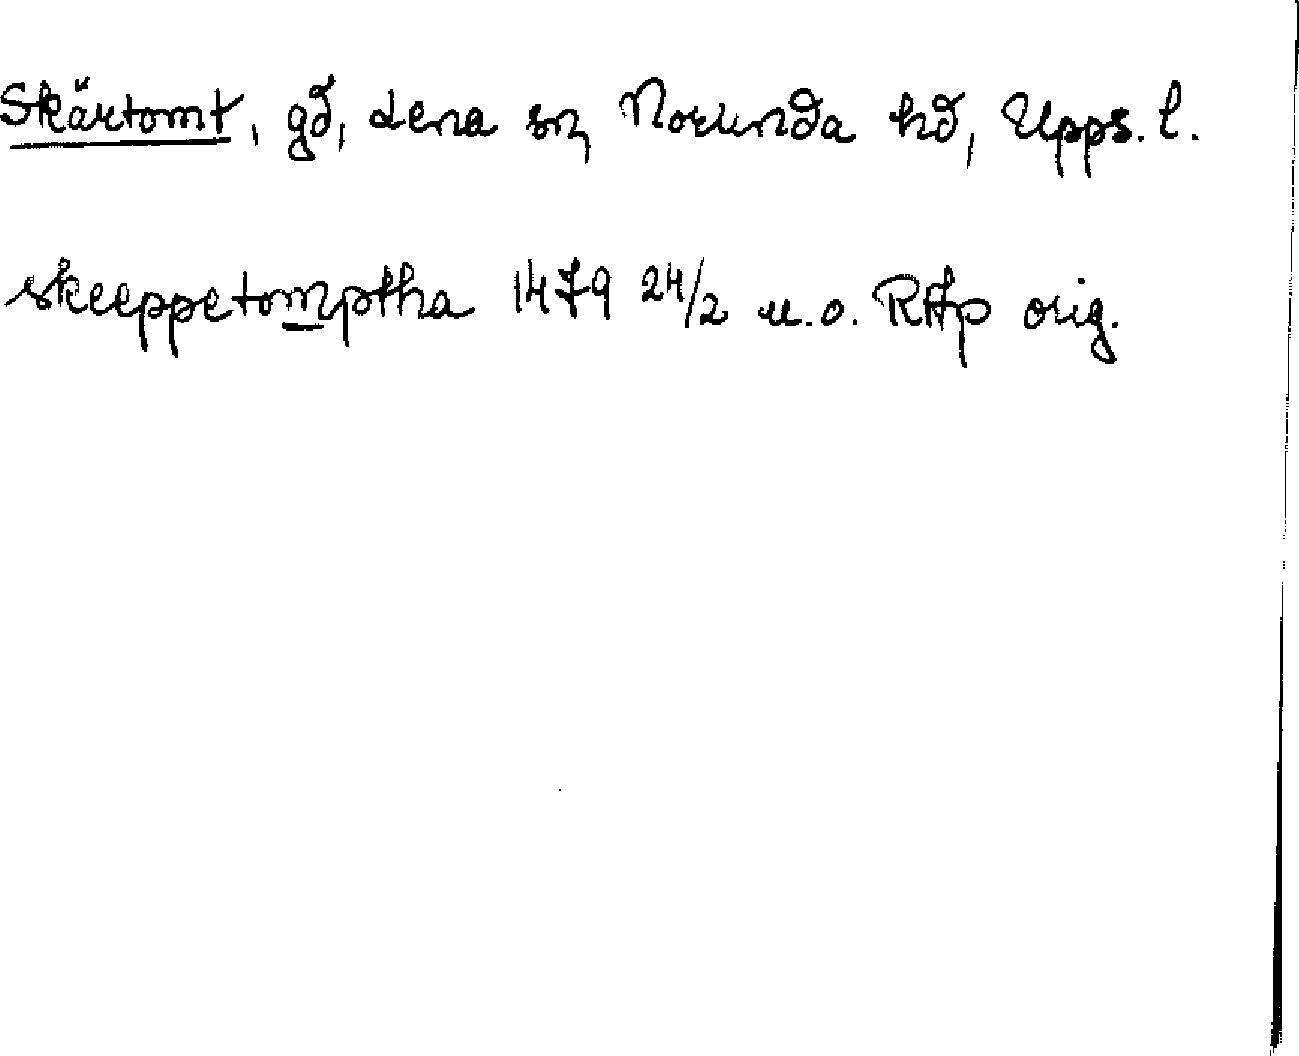 Skärtomt, gd, Lena sn, Norunda hd, Upps. l.
skeeppetomptha 1479 24/2 u.o. RAp orig.